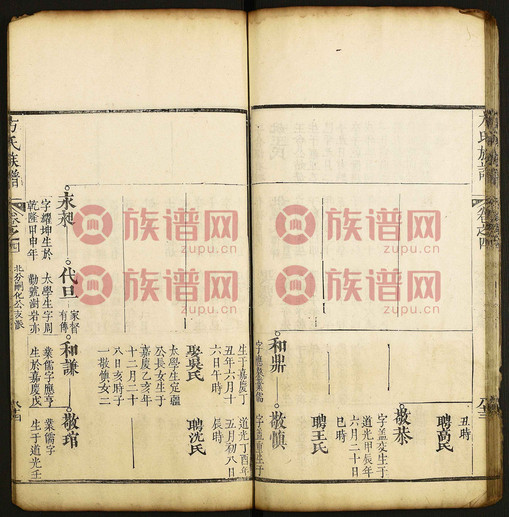 方氏族譜
卷之四
丑時
聘高氏
敬恭
字蓋變生于
道光甲辰年
六月二十日
巳時
聘王氏
敬慎
和鼎
字應
業儒
生于嘉慶丁
丑年六月十
六日午時
娶吳氏
太學生定疆
公長女生于
嘉慶乙亥年
十二月二十
八日亥時子
一敬慎女二
道光丁酉年
五月初八日
辰時
聘沈氏
永昶
字繼坤生於
乾隆甲申年
代旦
家督
有傳
太學生字周
勳號澍岩亦
和謙
業儒字應亨
生於嘉慶戊
敬琯
業儒字
生于道光壬
方氏族譜
卷之四
族谱网
zupu.cn
族谱网
zupu.cn
族谱网
zupu.cn
族谱网
zupu.cn